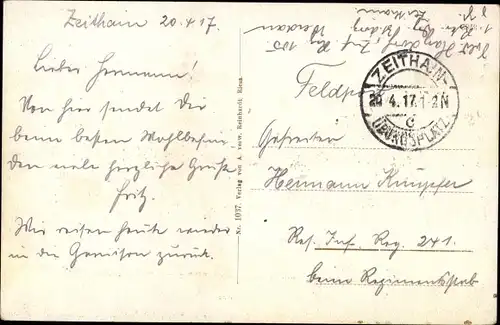 Zeithain 20.4.17.
Lieber Hermann!
Von hier sendet Dir
beim besten Wohlbefin-
den viele herzliche Grüße
Fritz.
Wir reisen heute wieder
in die Garnison zurück.
Nr. 1037. Verlag von A. verw. Reinhardt, Riesa
Zeithain
ZEITHAIN-
20.4.17.1-2N
c
ÜBUNGSPLATZ
Feldp
Gefreiten
Hermann Knüpfer
Res. Inf. Reg. 241.
beim Regimentsstab